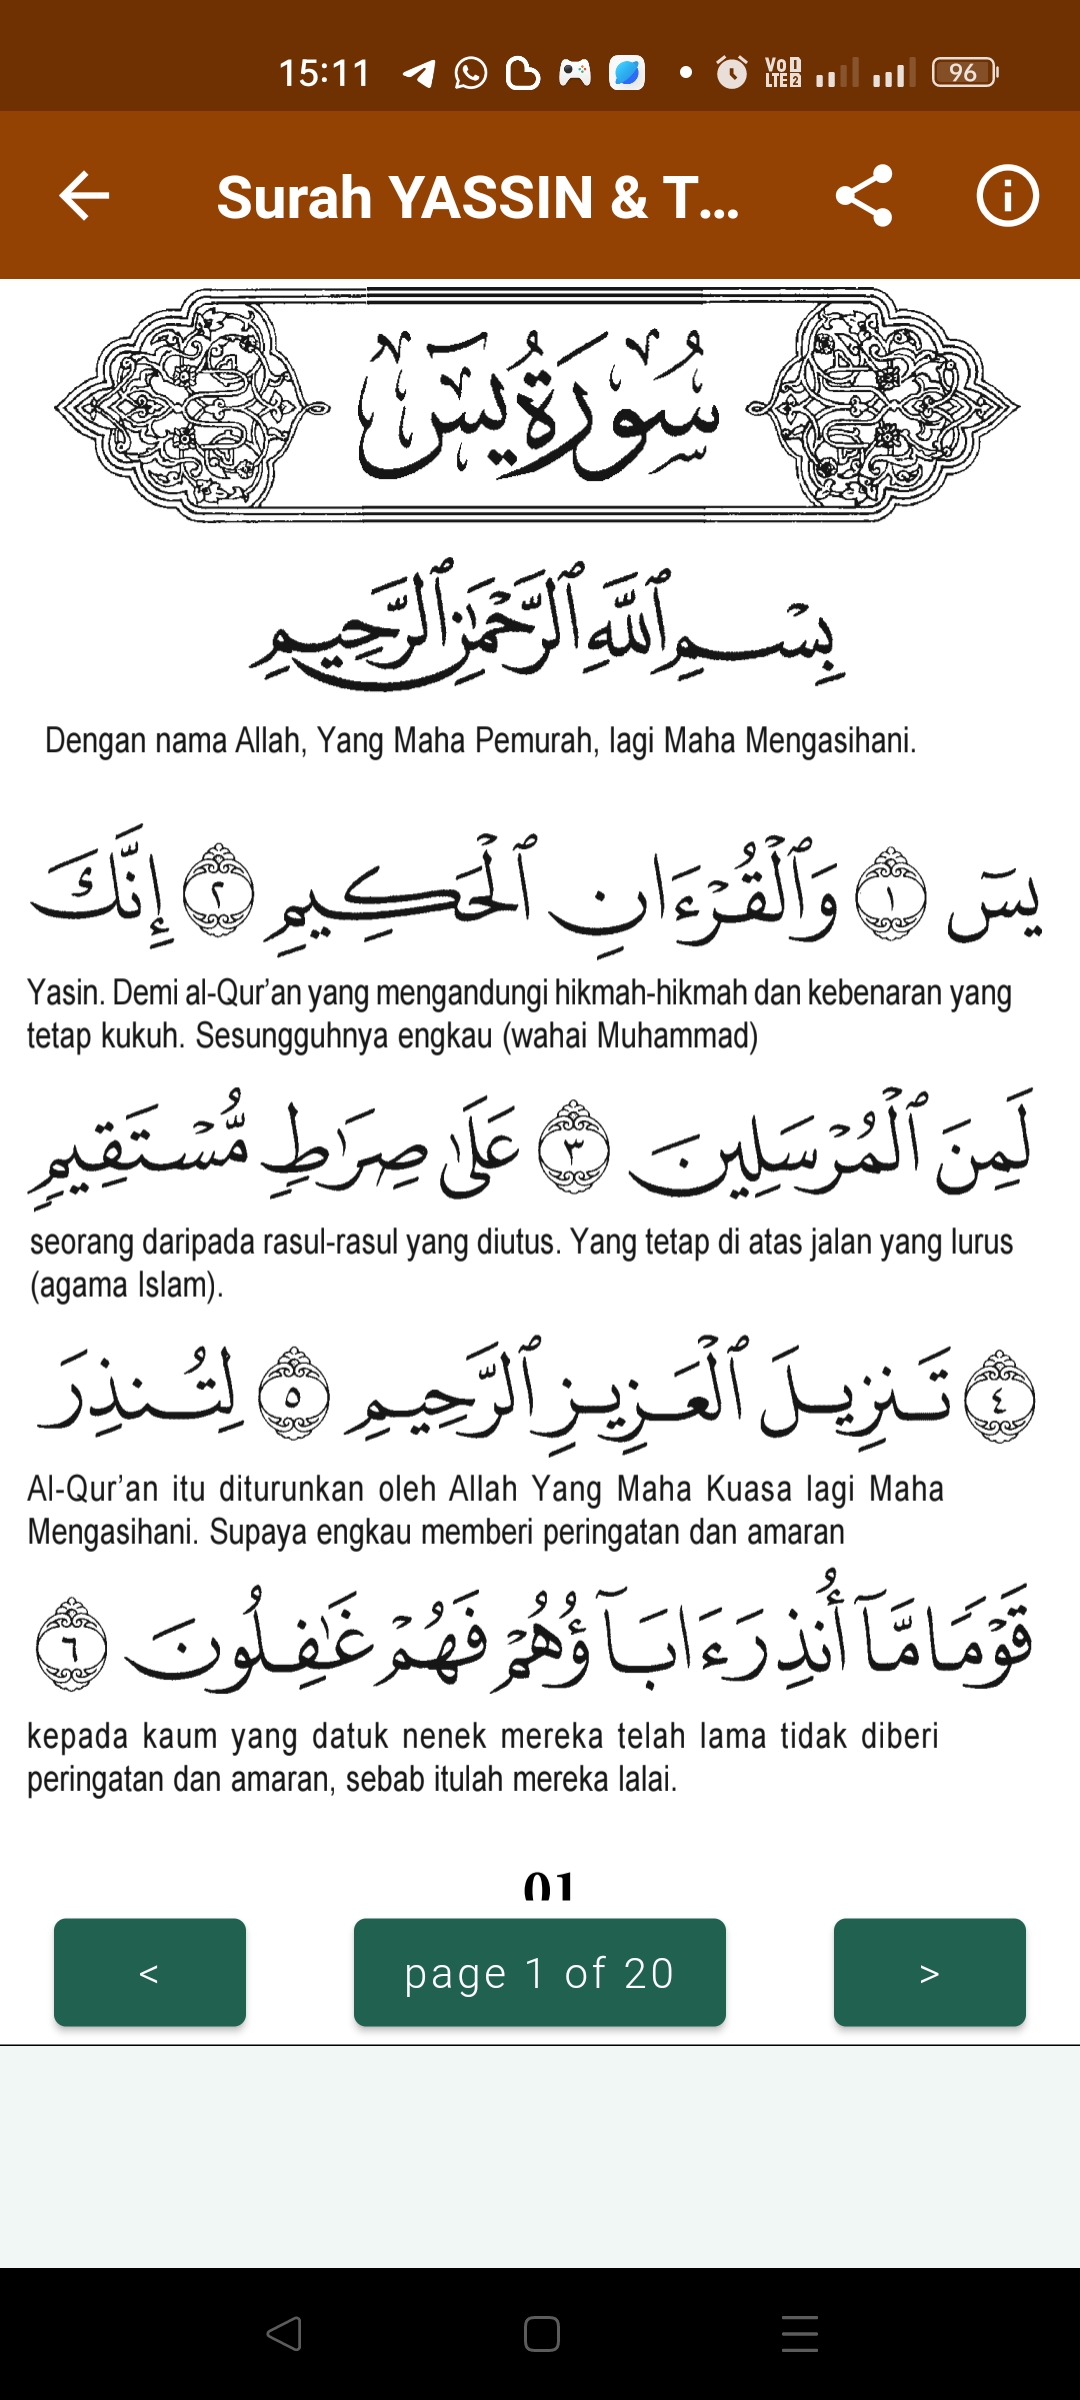 15:11
VoD LTE2
96
Surah YASSIN & T...
سُورَةُ يسٓ
بِسْمِ ٱللَّهِ ٱلرَّحْمَٰنِ ٱلرَّحِيمِ
Dengan nama Allah, Yang Maha Pemurah, lagi Maha Mengasihani.
يسٓ ١ وَٱلْقُرْءَانِ ٱلْحَكِيمِ ٢ إِنَّكَ
Yasin. Demi al-Qur’an yang mengandungi hikmah-hikmah dan kebenaran yang
tetap kukuh. Sesungguhnya engkau (wahai Muhammad)
لَمِنَ ٱلْمُرْسَلِينَ ٣ عَلَىٰ صِرَٰطٍ مُّسْتَقِيمٍ
seorang daripada rasul-rasul yang diutus. Yang tetap di atas jalan yang lurus
(agama Islam).
٤ تَنزِيلَ ٱلْعَزِيزِ ٱلرَّحِيمِ ٥ لِتُنذِرَ
Al-Qur’an itu diturunkan oleh Allah Yang Maha Kuasa lagi Maha
Mengasihani. Supaya engkau memberi peringatan dan amaran
قَوْمًا مَّآ أُنذِرَ ءَابَآؤُهُمْ فَهُمْ غَٰفِلُونَ ٦
kepada kaum yang datuk nenek mereka telah lama tidak diberi
peringatan dan amaran, sebab itulah mereka lalai.
01
<
page 1 of 20
>